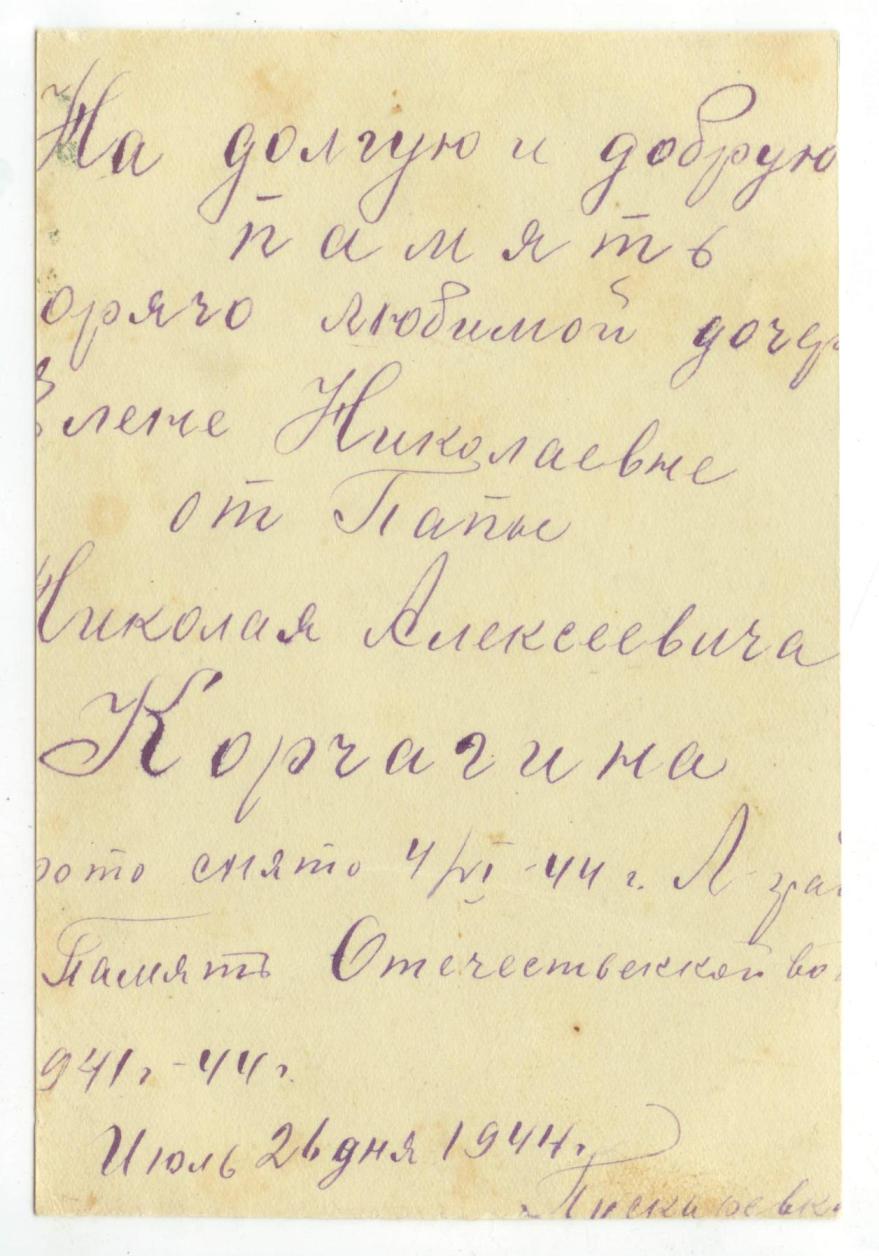 На долгую и добрую
память
орячо любимой дочер
Елене Николаевне
от Папы
Николая Алексеевича
Корчагина
фото снято 4/VI-44 г. Л-град
Память Отечественной вой
941г.-44г.
Июль 26 дня 1944г.
Пискаревка